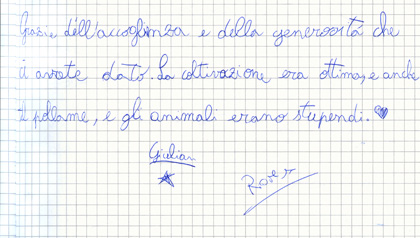 Grazie dell'accoglienza e della generosità che
ci avete dato. La coltivazione era ottima, e anche
il pollame, e gli animali erano stupendi.
Giulian
Rover